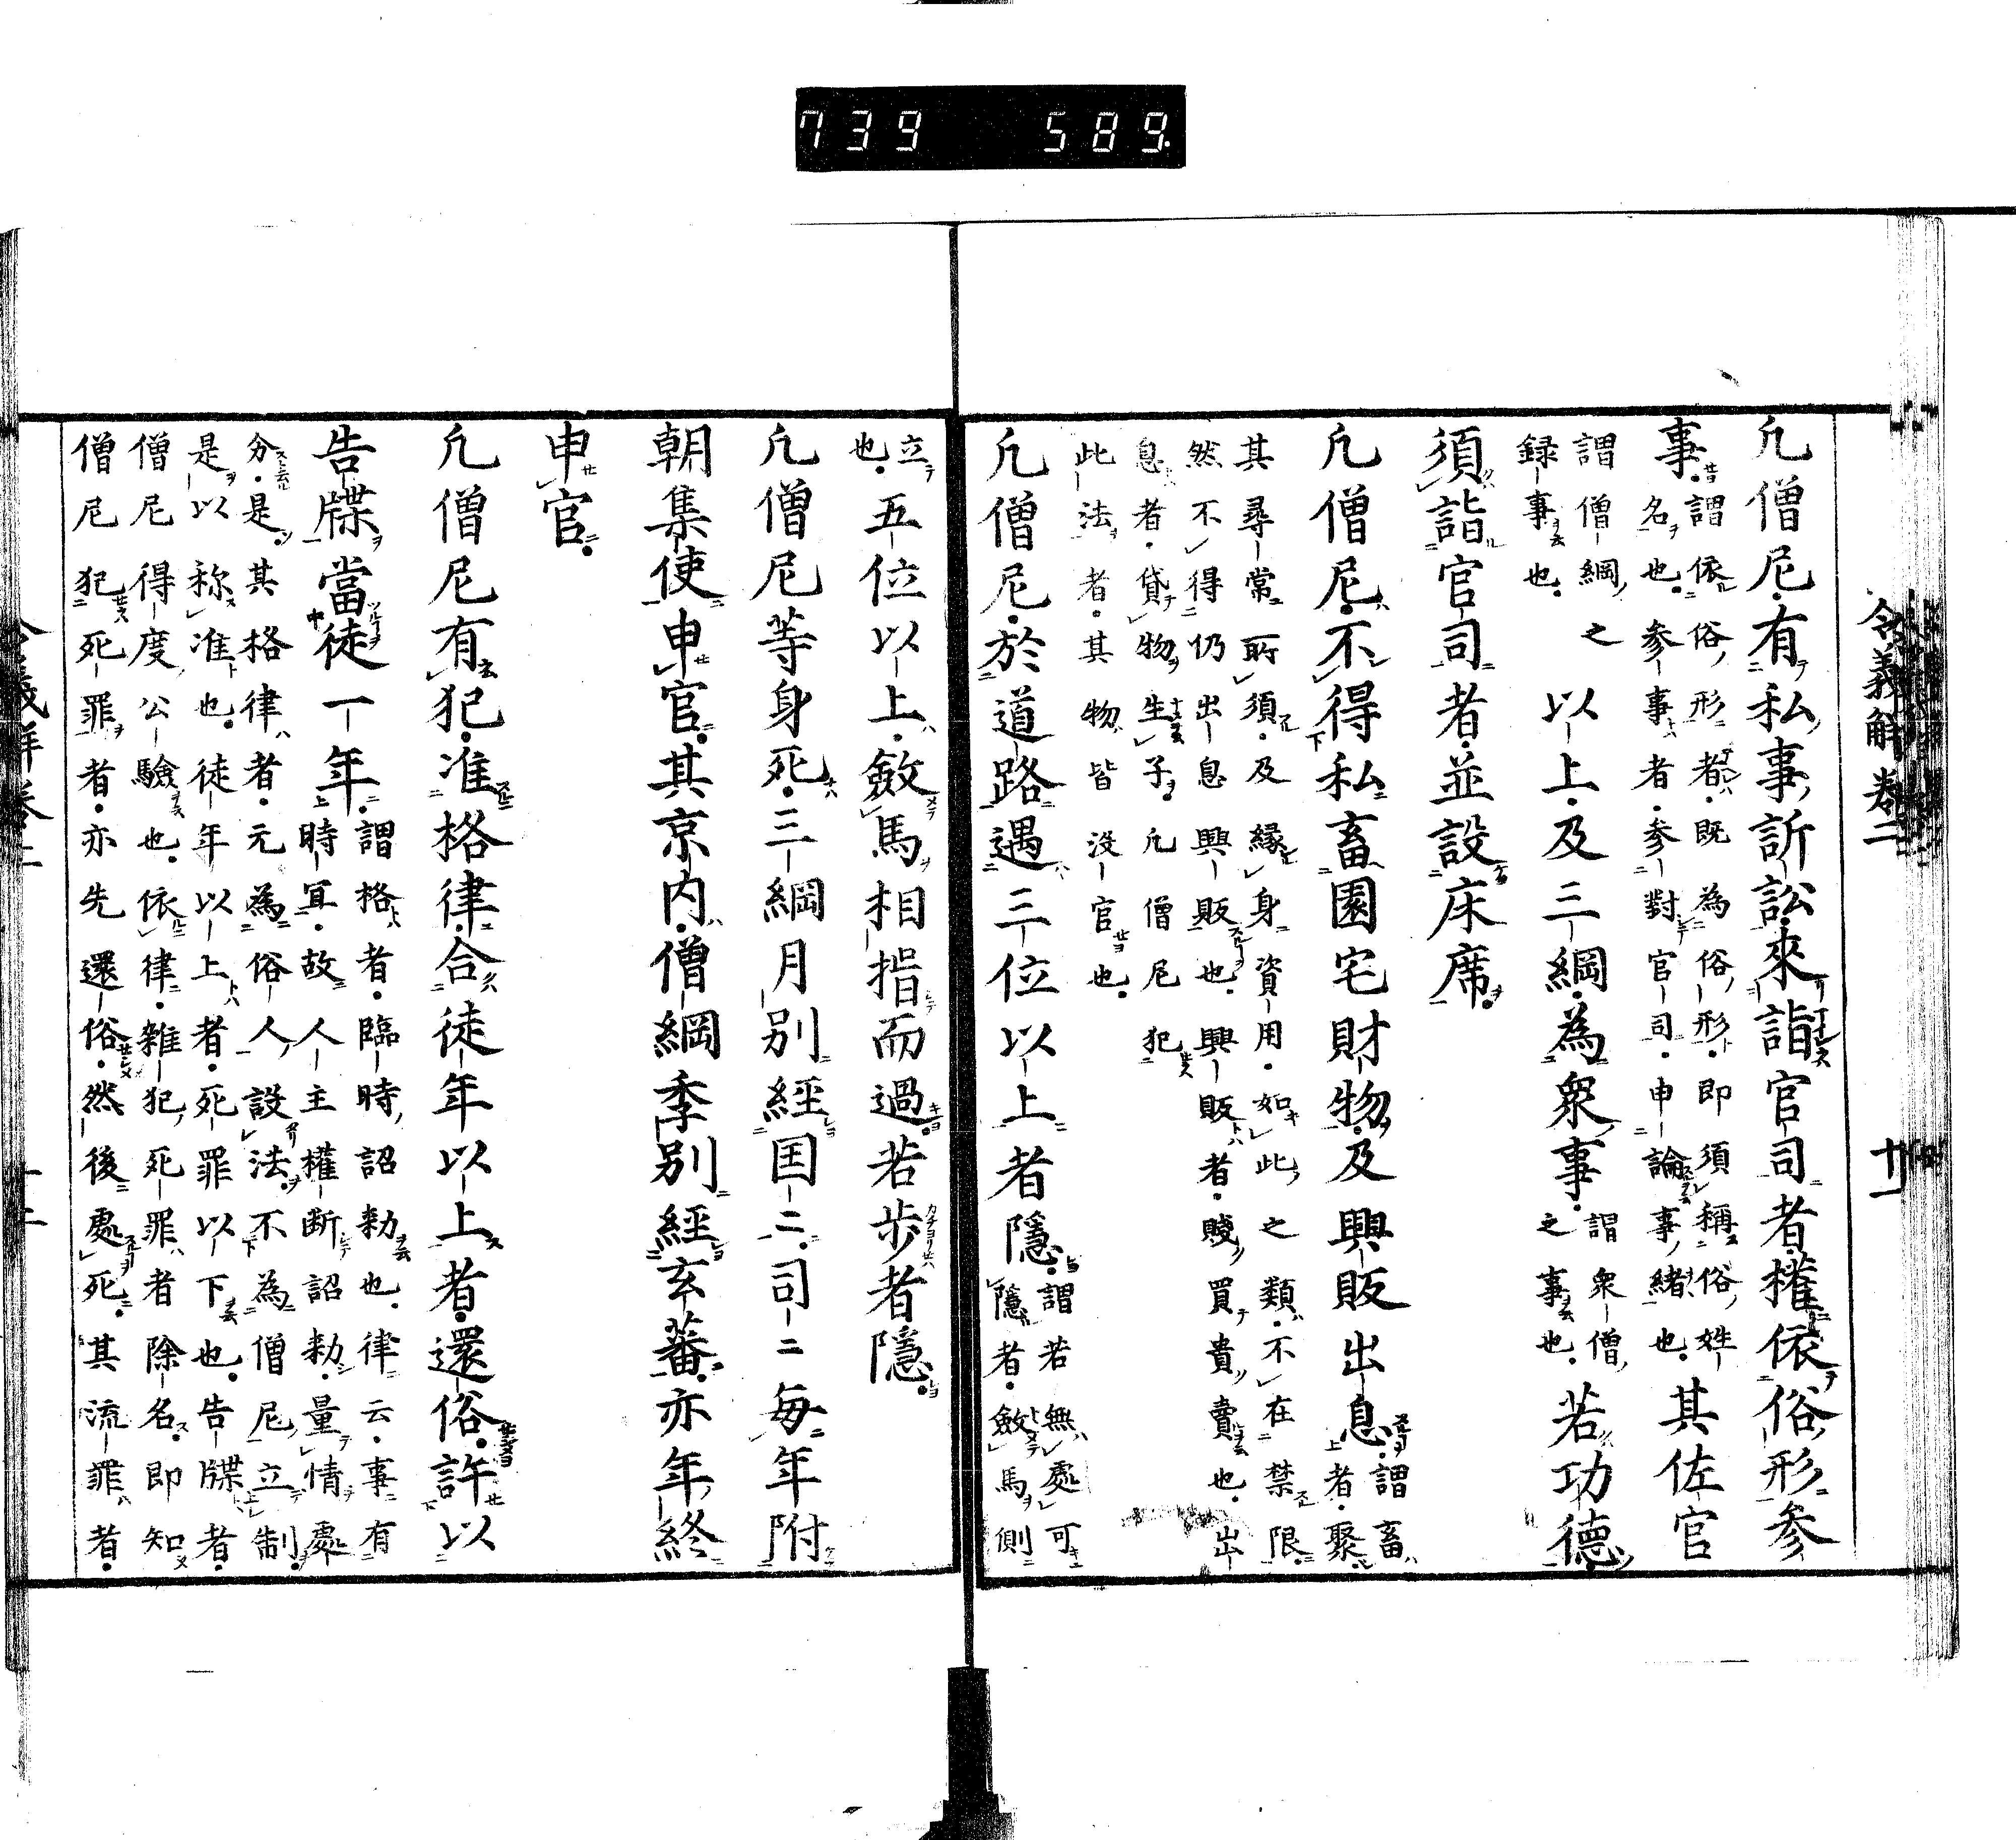 739 589.
令義解卷二 十一
凢僧尼有私事訴訟來詣官司者權依俗形參
事謂依俗形者既為俗形即須稱俗姓
名也參事者參對官司申論事緒也其佐官
謂僧綱之
録事也以上及三綱為衆事謂衆僧
之事也若功德
須詣官司者並設床席
凢僧尼不得私畜園宅財物及興販出息謂畜
者聚
其尋常所須及縁身資用如此之類不在禁限
然不得仍出息興販也興販者賤買貴賣也出
息者貸物生子凢僧尼犯
此法者其物皆没官也
凢僧尼於道路遇三位以上者隱謂若無處可
隱者斂馬側
立
也五位以上斂馬相揖而過若歩者隱
凢僧尼等身死三綱月別經国二司二每年附
朝集使申官其京内僧綱季別經玄蕃亦年終
申官
凢僧尼有犯准格律合徒年以上者還俗許以
告牒當徒一年謂格者臨時詔勅也律云事有
時冝故人主權断詔勅量情處
分是其格律者元為俗人設法不為僧尼立制
是以称准也徒年以上者死罪以下也告牒者
僧尼得度公驗也依律雜犯死罪者除名即知
僧尼犯死罪者亦先還俗然後處死其流罪者